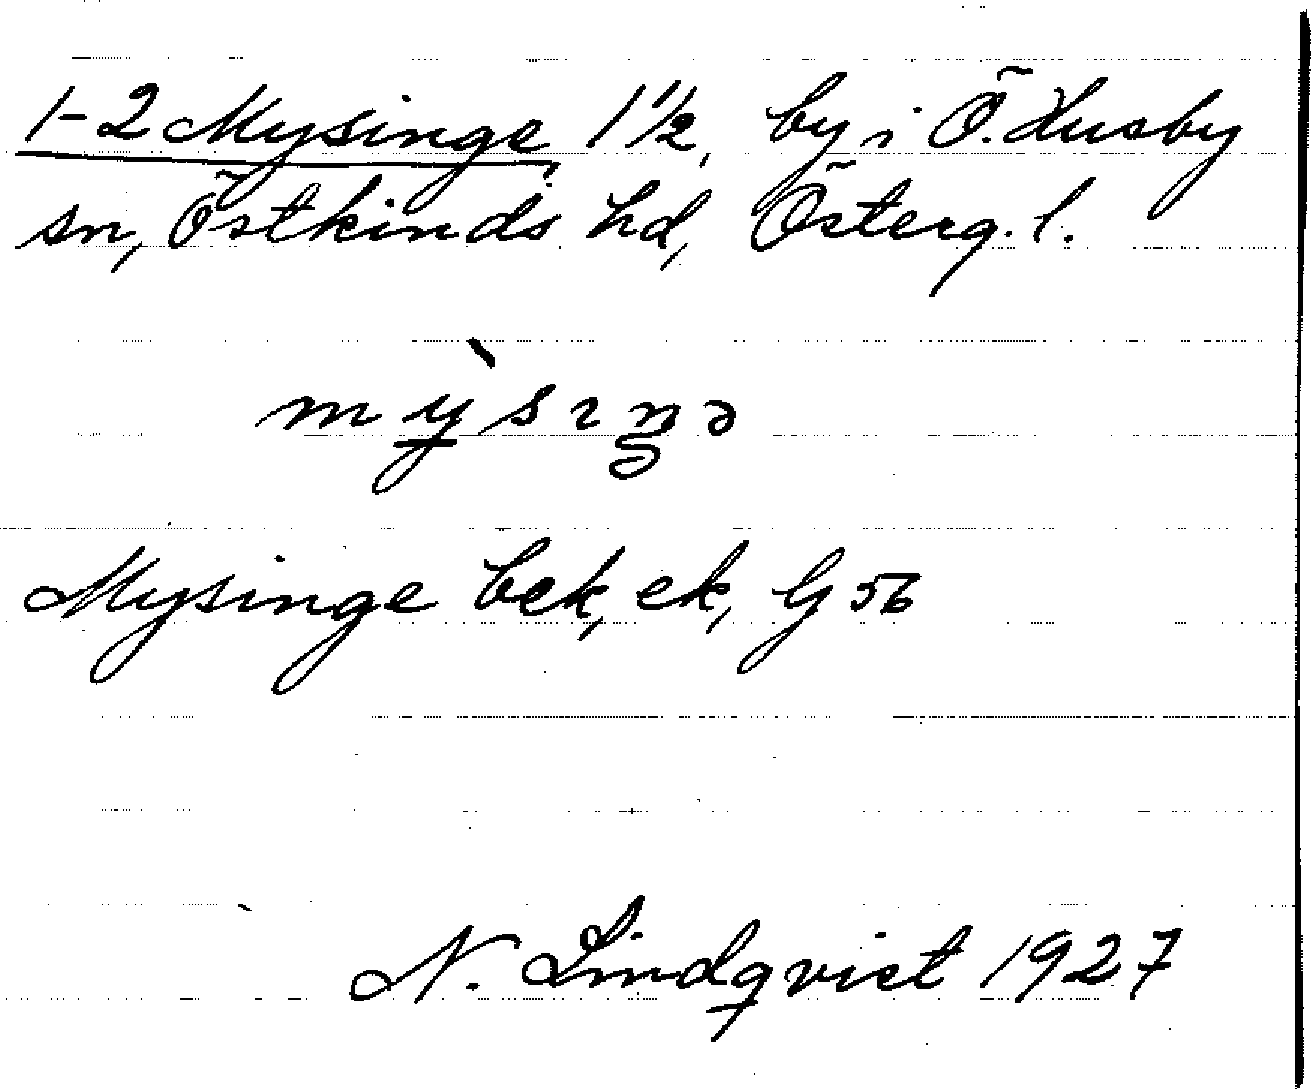 1-2 Mysinge, 1 1/2, by i Ö. Husby
sn, Östkinds hd, Österg. l.
mỳsıŋə
Mysinge bek, ek, G 56
N. Lindqvist 1927